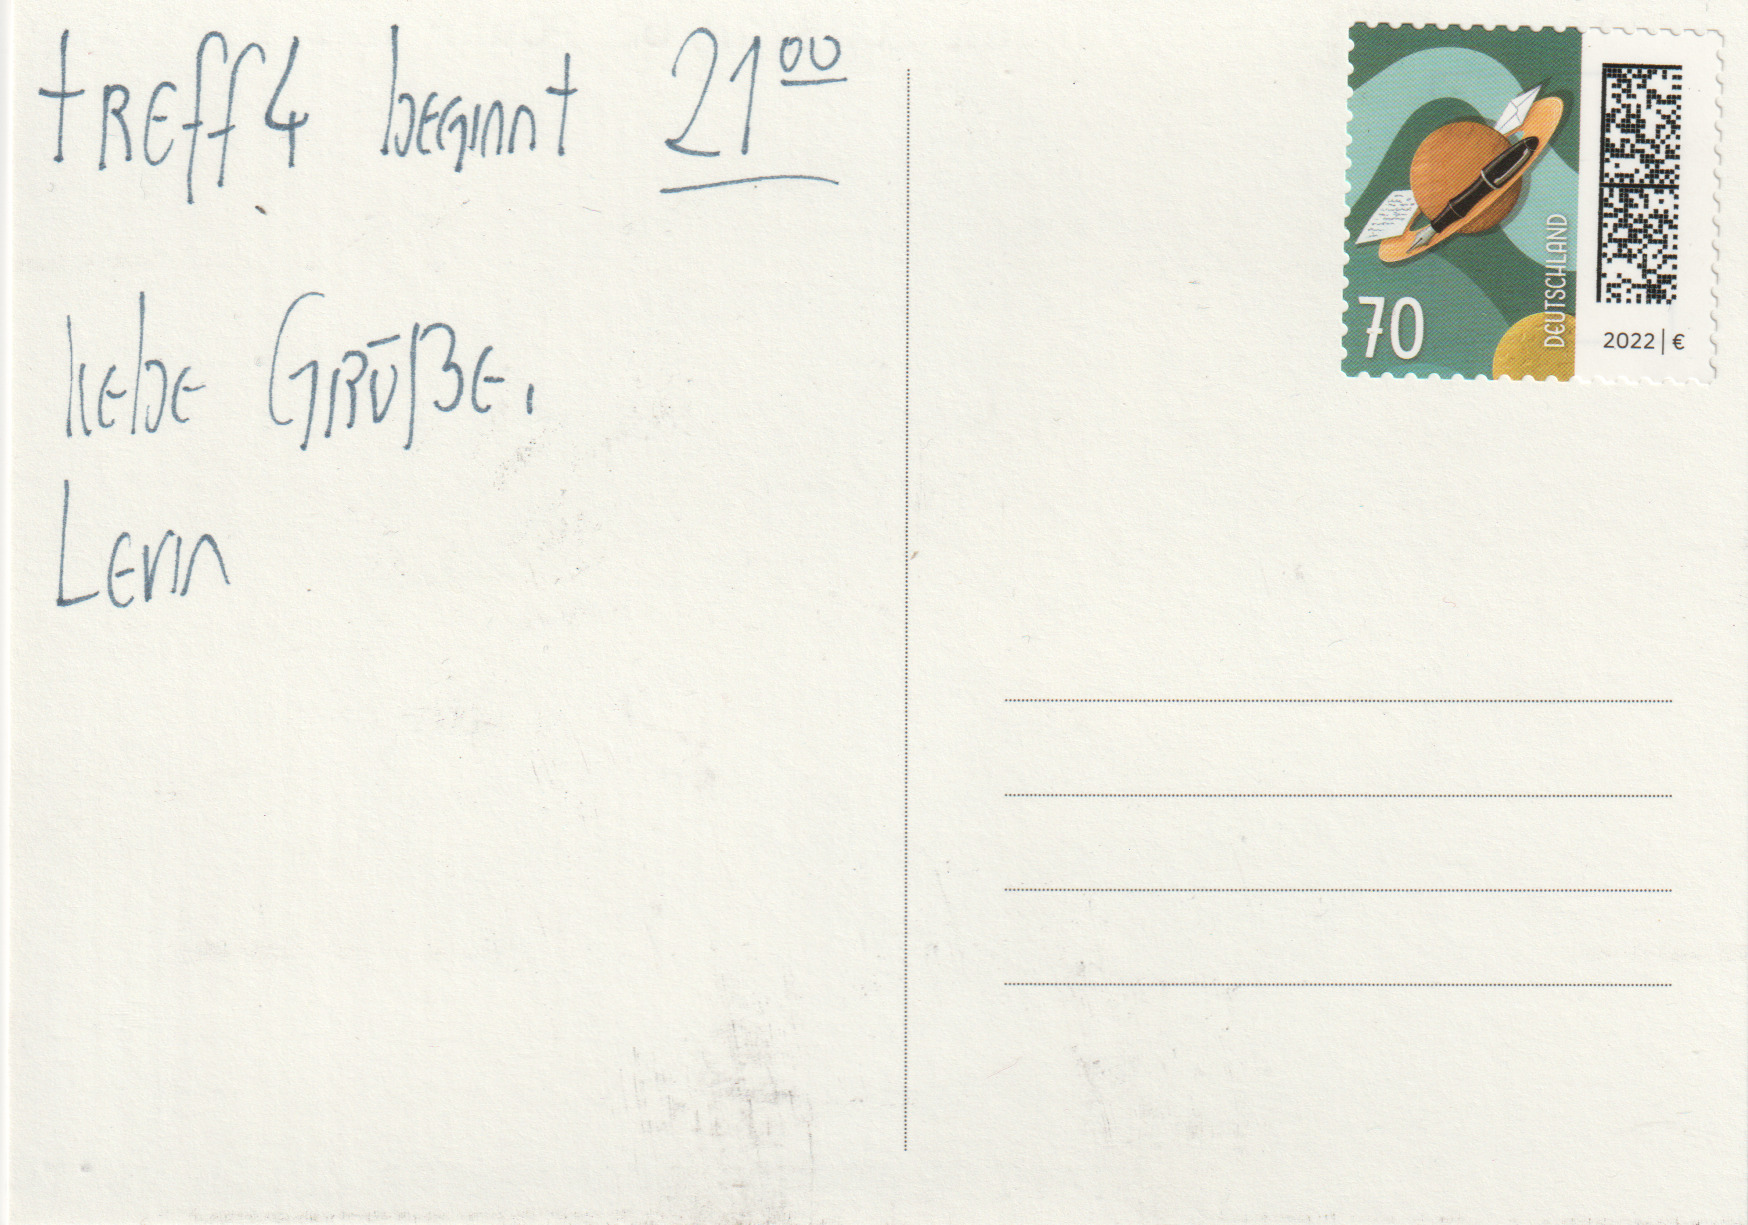 treff 4 beginnt 21⁰⁰
liebe Grüße,
Levin
70
DEUTSCHLAND
2022 | €